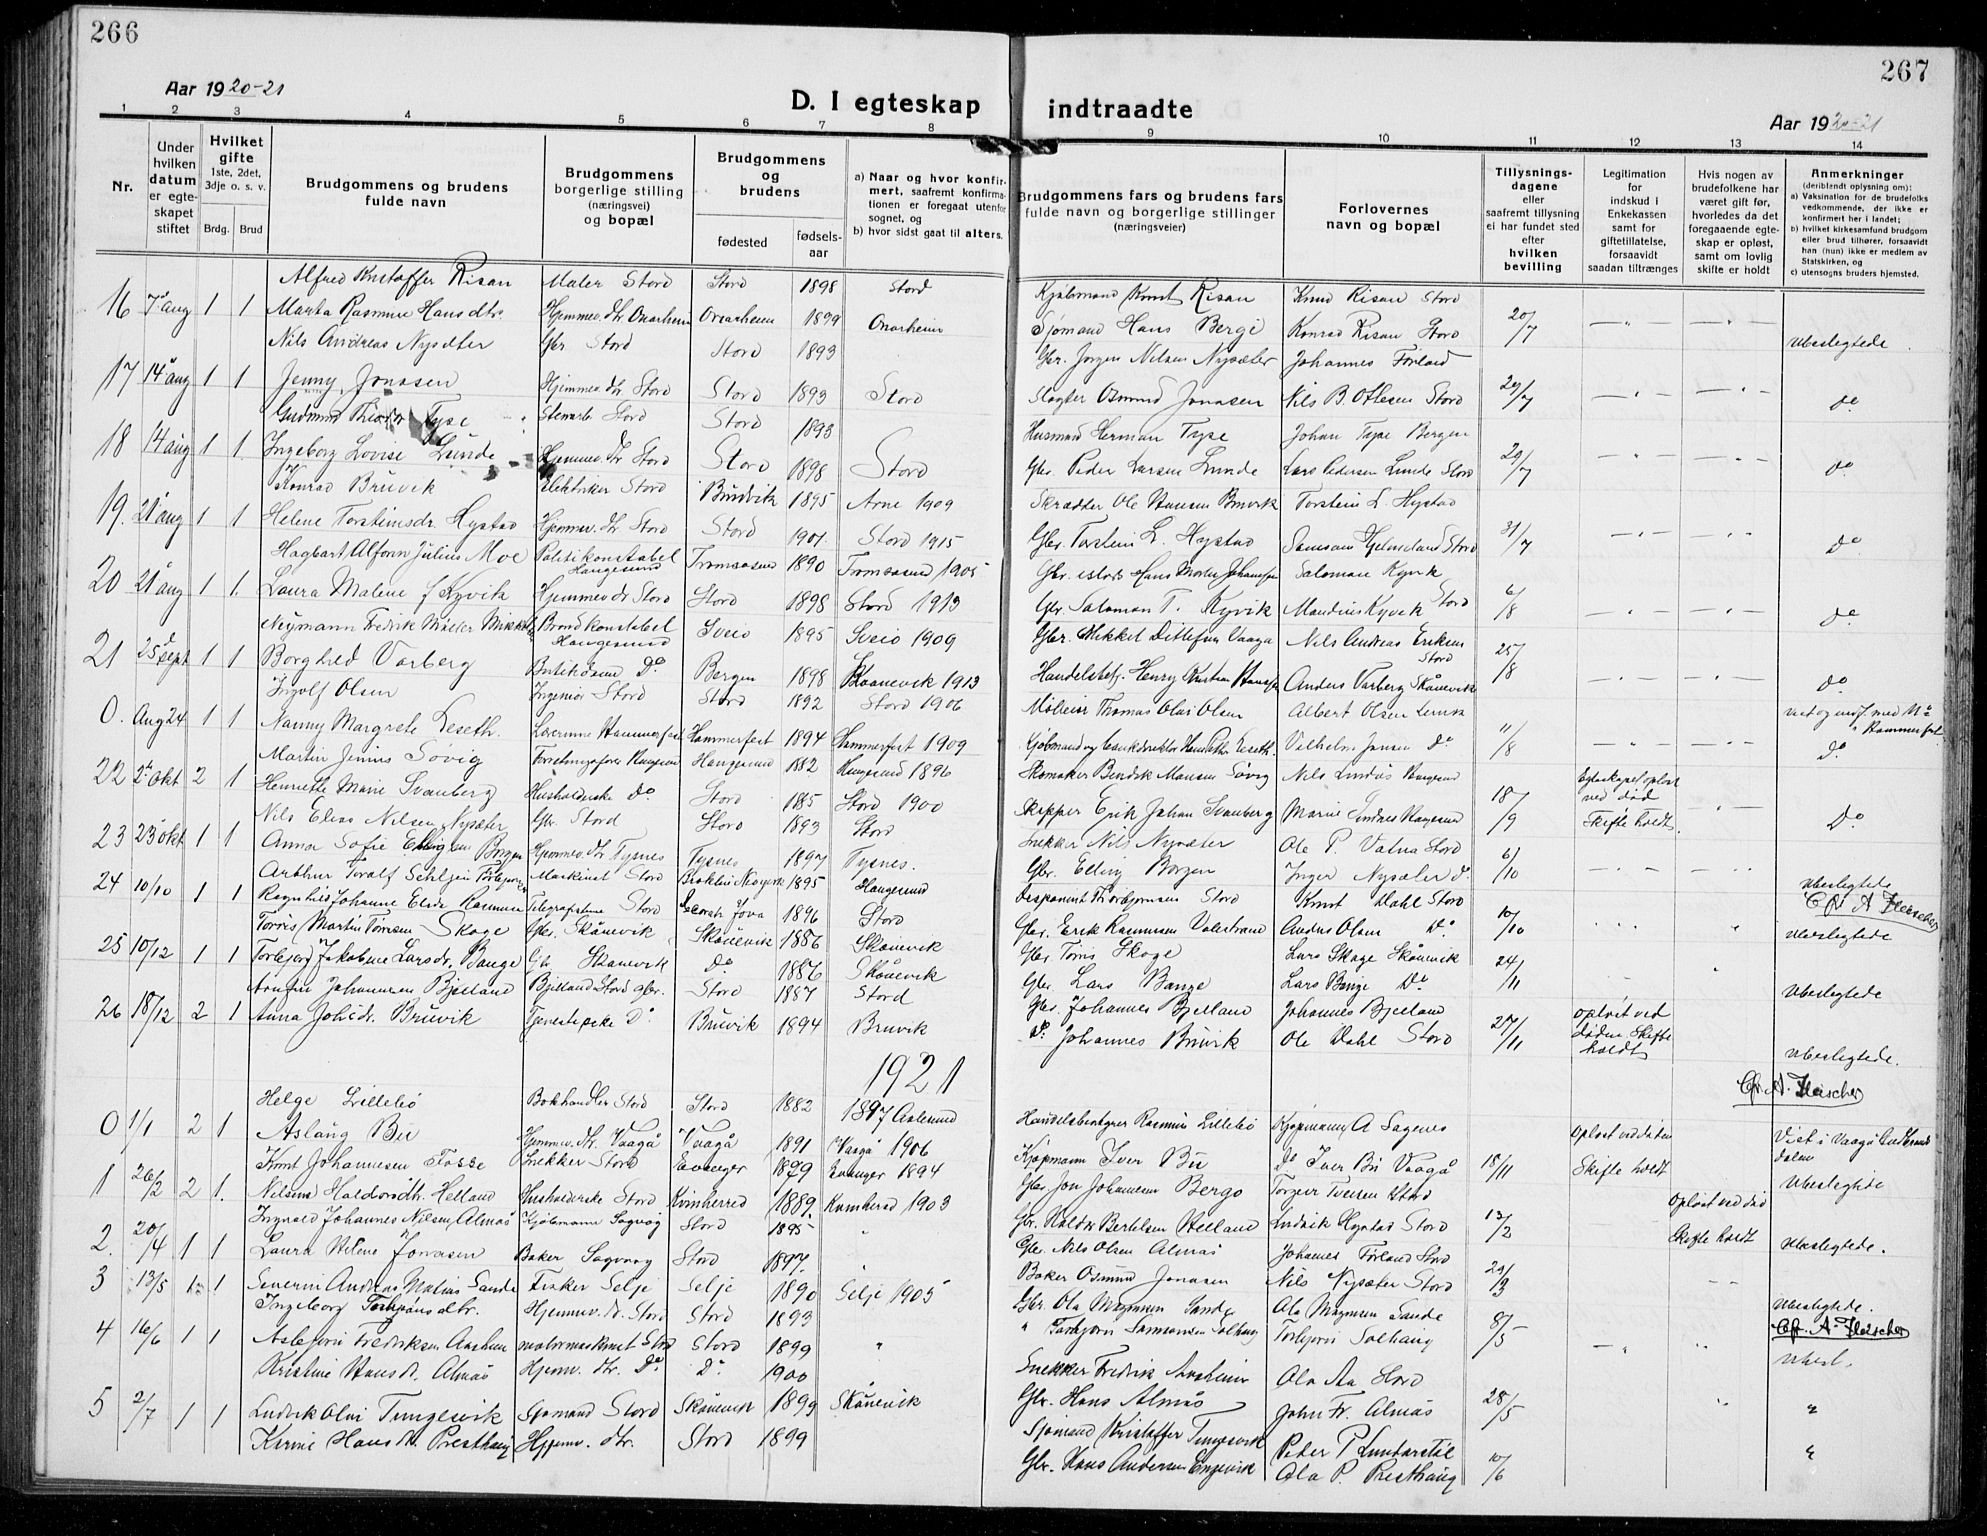 266
267
Aar 1920-21
D. I egteskap indtraadte
Aar 1920-21
1 2 3 4 5 6 7 8 9 10 11 12 13 14
Nr.
Under hvilken datum er egteskapet stiftet
Hvilket gifte 1ste, 2det, 3dje o. s. v.
Brdg. Brud
Brudgommens og brudens fulde navn
Brudgommens borgerlige stilling (næringsvei) og bopæl
Brudgommens og brudens
fødested fødselsaar
a) Naar og hvor konfirmert, saafremt konfirmationen er foregaat utenfor sognet, og
b) hvor sidst gaat til alters.
Brudgommens fars og brudens fars fulde navn og borgerlige stillinger (næringsveier)
Forlovernes navn og bopæl
Tillysningsdagene eller saafremt tillysning ei har fundet sted efter hvilken bevilling
Legitimation for indskud i Enkekassen samt for giftetillatelse, forsaavidt saadan tiltrænges
Hvis nogen av brudefolkene har været gift før, hvorledes da det foregaaende egteskap er opløst, samt om lovlig skifte er holdt
Anmerkninger (deriblandt oplysning om):
a) Vaksination for de brudefolks vedkommende, der ikke er konfirmert her i landet;
b) hvilket kirkesamfund brudgom eller brud tilhører, forsaavidt han (hun) ikke er medlem av Statskirken, og
c) utensogns bruders hjemsted.
Alfred Kristoffer Risan Maler Stord Stord 1898 Stord Kjøbmand Knut Risan Knud Risan Stord
16 7 aug 1 1 Marta Rasmine Hansdtr. Hjemmev. dtr. Onarheim Onarheim 1899 Onarheim Sjømand Hans Berge Konrad Risan Stord 20/7 ubeslegtede
Nils Andreas Nysæter Gbr. Stord Stord 1893 Gbr. Jørgen Nilsen Nysæter Johannes Førland
17 14 aug 1 1 Jenny Jonasen Hjemmev. dtr. Stord Stord 1893 Stord Slagter Osmund Jonasen Nils B. Ottesen Stord 29/7 do
Gudmund Tyse Stenarb. Stord Stord 1893 Husmand Herman Tyse Johan Tyse Bergen
18 14 aug 1 1 Ingeborg Lovise Lunde Hjemmev. dtr. Stord Stord 1898 Stord Gbr. Peder Larsen Lunde Lars Pedersen Lunde Stord 29/7 do
Konrad Bruvik Elektriker Stord Bruvik 1895 Arne 1909 Skrædder Ole Hansen Bruvik Torstein L. Hystad
19. 21 aug 1 1 Helene Torsteinsdr. Hystad Hjemmev. dtr. Stord Stord 1901. Stord 1915 Gbr. Torstein L. Hystad Samson Stord 31/7 do
Hagbart Alfon Julius Moe Politikonstabel Haugesund Tromsøsund 1890 Tromsøsund 1905 Gbr. Hans Johansen Salomon Kyvik
20 21 aug 1 1 Laura Malene Kyvik Hjemmev dtr Stord Stord 1898 Stord 1913 Gbr. Salomon T. Kyvik Mandius Kyvik Stord 6/8 do
Neumann Fredrik Møller Brandkonstabel Haugesund Sveio 1895 Sveio 1909 Gbr. Mikkel Ditlefsen Vaaga Nils Andreas Eriksen Stord
21 25 sept 1 1 Borghild Varberg Do Bergen 1898 Skaanevik 1913 Handelsbetj. Henry Anders Varberg Skånevik 25/8 do
Ingolf Olsen Ingeniør Stord Stord 1892 Stord 1906 Thomas Olai Olsen Albert Olsen
0. Aug 24 1 1 Nanny Margrete Leseth. Lærerinne Hammerfest Hammerfest 1894 Hammerfest 1909 Kjøbmand og bankdirektør Leseth Vilhelm Jensen Do 11/8 Do
Martin Jenius Søvig Haugesund 1882 Haugesund 1896 Skomaker Bendik Monsen Søvig Nils Lindøs Haugesund Egteskapet opløst ved død
22 2 okt 2 1 Henriette Marie Svanberg Husholderske Do Stord 1885 Stord 1900 Skipper Erik Johan Svanberg Marie Lindøs Haugesund 18/9 Skifte holdt. Do
Nils Elias Nilsen Nysæter Gbr. Stord Stord 1893 Stord Snekker Nils Nysæter Ole P. Vatna Stord
23 23 okt 1 1 Anna Sofie Ellingsen Borgen Hjemmev. dtr. Tysnes Tysnes 1897 Tysnes. Gbr. Elling Borgen Inger Nysæter D. 6/10 ubeslegtede
Arthur Toralf Maskinist Stord Brooklin Newyork 1895 Haugesund Disponent Thorbjørnsen Stord Knut Dahl Stord Chr. A Fleischer
24 10/10 1 1 Ragnhild Johanne Elise Rasmusen Telegrafistinne Stord Java 1896 Stord Gbr. Erik Rasmussen Valestrand Anders Olsen Do 10/10 ubeslegtede
Torris Martin Torrisen Skoge Gbr. Skånevik Skånevik 1886 Skånevik Gbr. Torris Skoge Lars Skoge Skånevik
25 10/12 1 1 Torbjørg Jakobine Larsdr. Bange Gbr Skånevik Do 1886 Skånevik Gbr. Lars Bange Lars Bange Do 24/11 Ubeslegtede
Johannesen Bjelland Bjelland Stord gbr. Stord 1887 Stord Gbr. Johannes Bjelland Johannes Bjelland opløst ved
26 18/12 2 1 Anna Johsdr. Bruvik Tjenestepike Do Bruvik 1894 Bruvik Do Johannes Bruvik Ole Dahl Stord 27/11 døden Skifte holdt ubeslegtede.
1921
Chr. A. Fleischer
Helge Lillebø Bokhandler Stord Stord 1882 1897 Aalesund Handelsbestyrer Rasmus Lillebø Kjøpmann A Sagenes Opløst ved døden
0 1/1 2 1 Aslaug Bu Hjemmev. dtr. Vaagå Vaagå 1891 Vaagå 1906 Kjøpmann Iver Bu Do Iver Bu Vaagå 18/11 Skifte holdt Viet i Vaagå Gudbrandsdalen
Knut Johannesen Fosse Snekker Stord Evanger 1879 Evanger 1894 Gbr Jon Johannesen Bergo Torgeir Tveiten Stord Ubeslegtede
1 26/2 2 1. Nilsine Haldorsdtr. Helland Husholderske Stord Kvinherred 1889. Kvinherad 1903 Gbr. Haldor Bertelsen Helland Ludvik Hystad Stord 12/2 Opløst ved død Skifte holdt ubeslegtede.
Ingvald Johannes Nilsen Almås Kjøbmann Sagvåg Stord 1895 Gbr. Nils Olsen Almås Johannes Førland Stord
2. 20/4 1 1 Laura Helene Jonasen Baker Sagvaag Stord 1897. Baker Osmund Jonasen Nils Nysæter Stord 29/3
3 13/5 1 1 Severin Andreas Matias Sande Fisker Selje Selje 1890 Selje 1905 Gbr. Ola Magnusen Sande Ola Magnusen Sande ubeslegtede.
Ingeborg Torbjønsdtr. Hjemmev. dt. Stord Stord 1893 " Torbjørn Samsonsen Solhaug Torbjørn Solhaug 8/5 Chr. A. Fleischer
4 16/6 1 1 Asbjørn Fredriksen motormaskinist Stord Stord 1899 Snekker Fredrik Ola Aa Stord Ubesl.
Kristine Hansdt. Almås Hjemv. dtr. Do Do 1900 Gbr. Hans Almås John Fr. Almås 28/5
5 2/7 1 1 Ludvik Olai Tungesvik Sjømand Stord Skånevik 1899 Skånevik Sjømand Kristoffer Tungesvik Peder P Lundarstøl
Karine Hansdt. Presthaug Hjemv. dtr. Stord 1899 Gbr. Hans Andersen Engevik Ola P. Presthaug 10/6